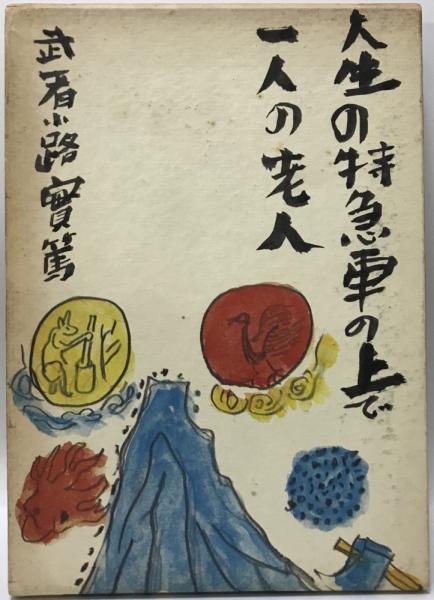 人生の特急車の上で
一人の老人
武者小路實篤